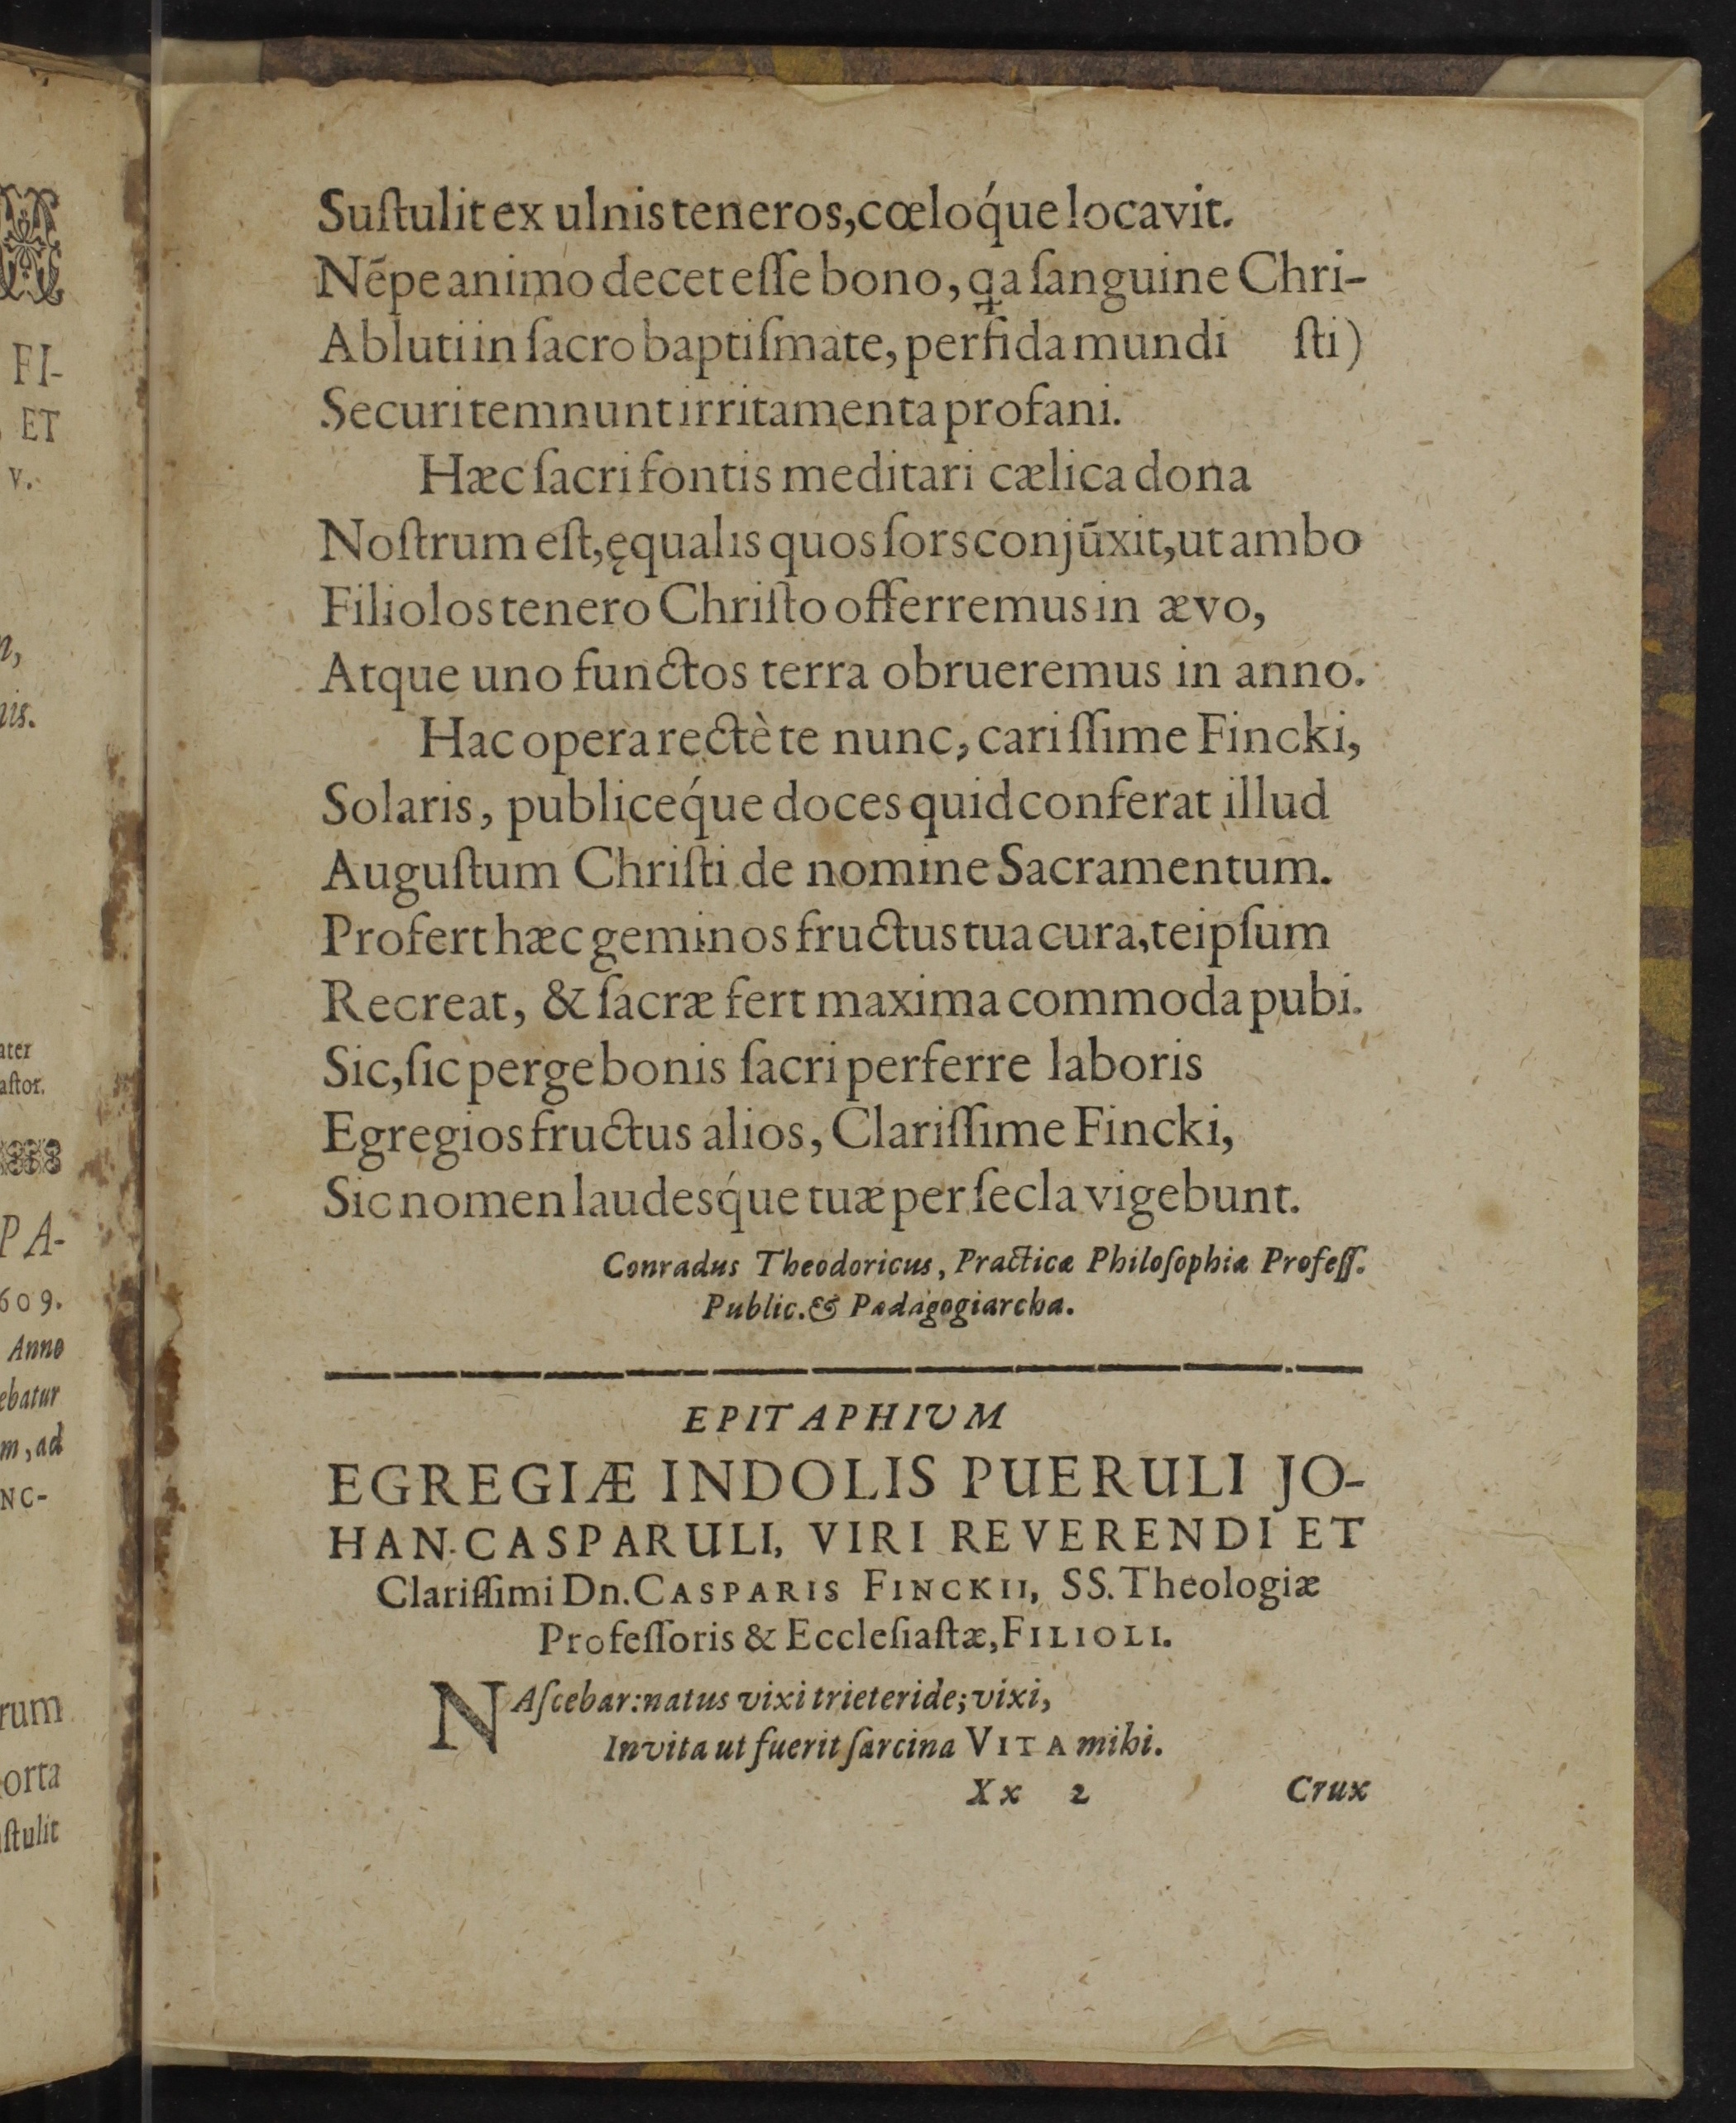 Suſtulit ex ulnis teneros, cœloq́ue locavit.
Nẽpe animo decet eſſe bono, ꝗa ſanguine Chri-
Abluti in ſacro baptiſmate, perfida mundi ſti)
Securi temnunt irritamenta profani.
Hæc ſacri fontis meditari cælica dona
Noſtrum eſt, ęqualis quos ſors conjũxit, ut ambo
Filiolos tenero Chriſto offerremus in ævo,
Atque uno functos terra obrueremus in anno.
Hac opera rectè te nunc, cariſſime Fincki,
Solaris, publiceq́ue doces quid conferat illud
Auguſtum Chriſti de nomine Sacramentum.
Profert hæc geminos fructus tua cura, teipſum
Recreat, & ſacræ fert maxima commoda pubi.
Sic, ſic perge bonis ſacri perferre laboris
Egregios fructus alios, Clariſſime Fincki,
Sic nomen laudesq́ue tuæ per ſecla vigebunt.
Conradus Theodoricus, Practicæ Philoſophiæ Profeſſ.
Public. & Pædagogiarcha.
EPITAPHIVM
EGREGIÆ INDOLIS PUERULI JO-
HAN-CASPARULI, VIRI REVERENDI ET
Clariſſimi Dn. CASPARIS FINCKII, SS. Theologiæ
Profeſſoris & Eccleſiaſtæ, FILIOLI.
NAſcebar: natus vixi trieteride; vixi,
Invita ut fuerit ſarcina VITA mihi.
Xx 2 Crux
FI-
ET
V.
n,
nis.
ater
aſtor.
PA-
609.
Anno
ebatur
m, ad
NC-
rum
orta
ſtulit